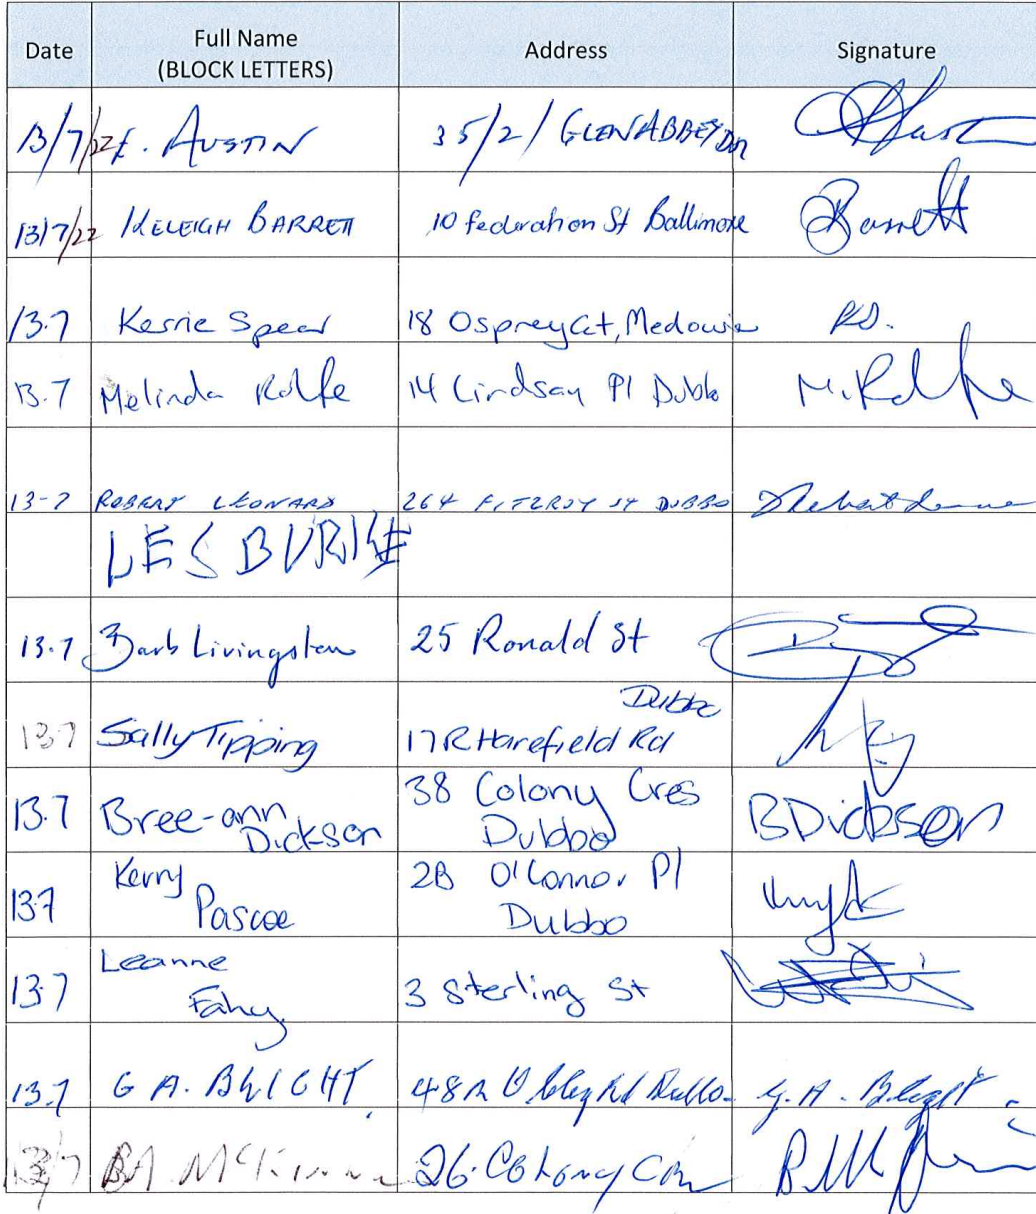 Date Full Name (BLOCK LETTERS) Address Signature
13/7/22 E. AUSTIN 35/2/ GLENABBEY
13/7/22 KELEIGH BARRETT 10 federation St Ballimore Barrett
13.7 Kerrie Spear 18 Osprey Ct, Medowie KS.
13.7 Melinda Rolfe 14 Lindsay Pl Dubbo M. Rolfe
13-7 ROBERT LEONARD 264 FITZROY ST DUBBO
LES BURKE
13.7 Barb Livingston 25 Ronald St
Dubbo
13.7 Sally Tipping 17R Harefield Rd
38 Colony Cres
13.7 Bree-ann Dickson Dubbo BDickson
Kerry 2B O'Connor Pl
13.7 Pascoe Dubbo
Leanne
13.7 Fahy 3 Sterling St
13.7 G A. BLIGHT 48R Rd Dubbo G. A. Blight
13/7 26 Colony